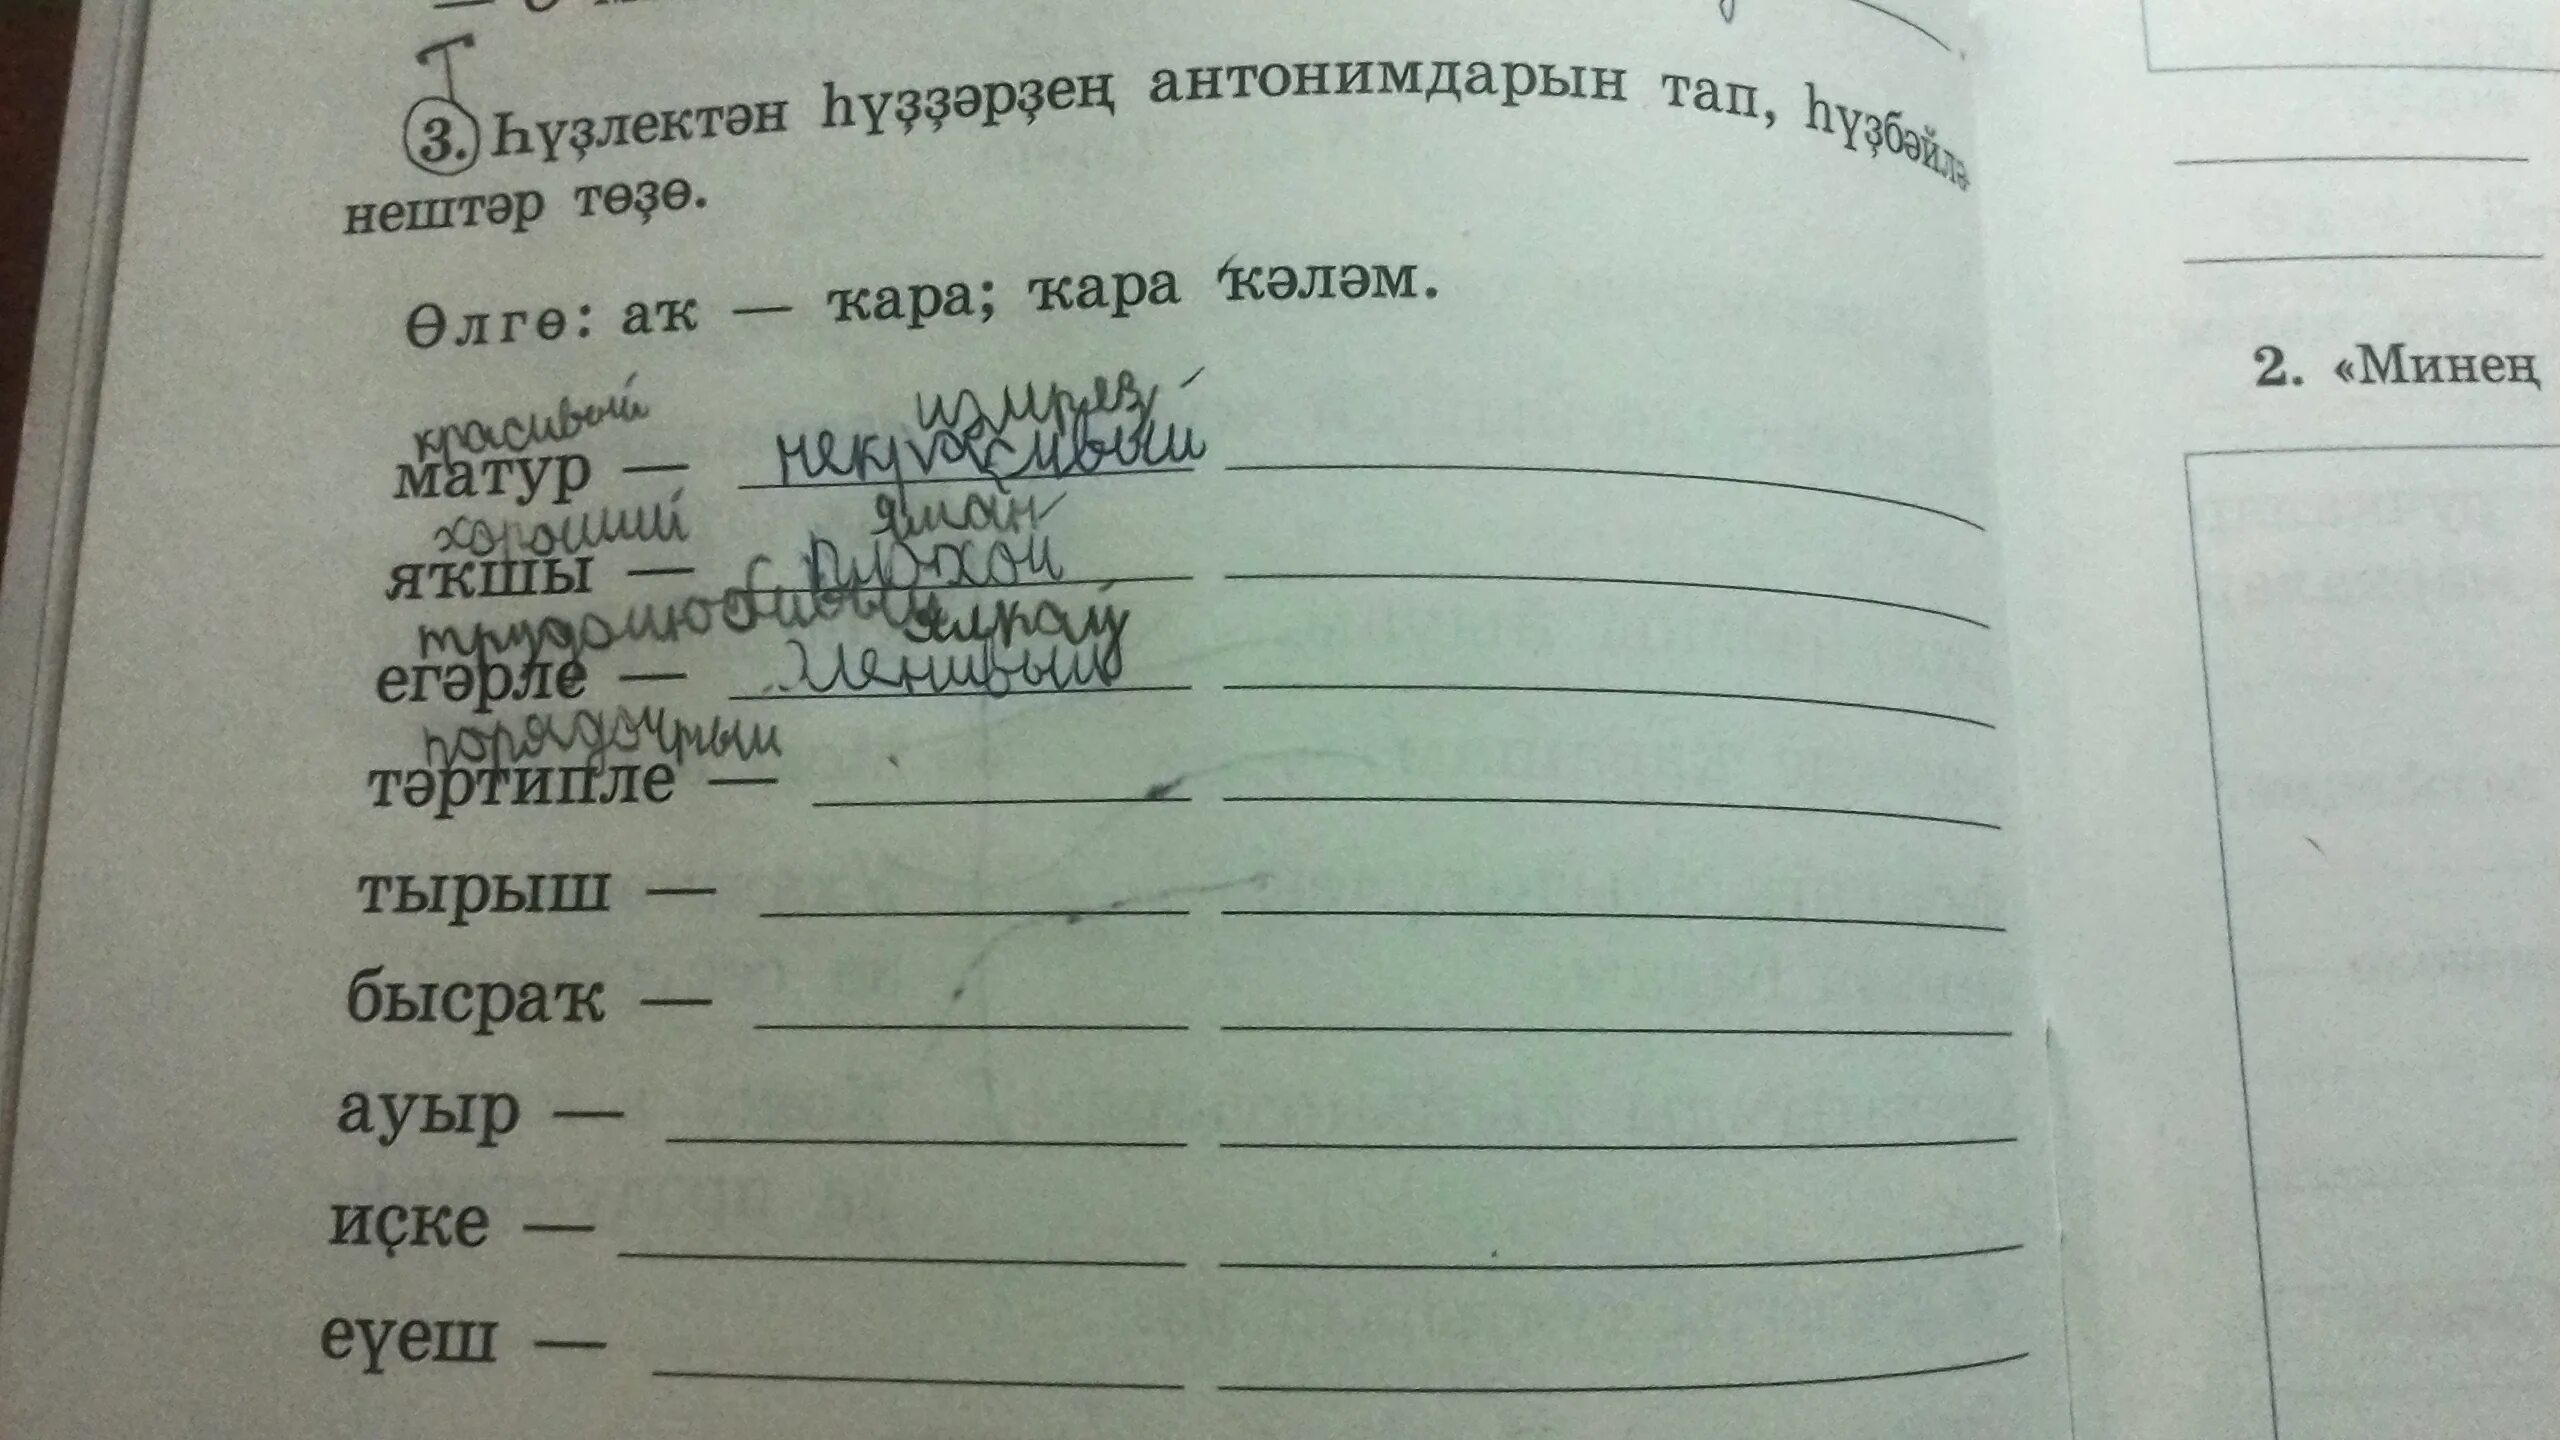 Т
3. Һүҙлектән һүҙҙәрҙең антонимдарын тап, һүҙбәйлә
нештәр төҙө.
Өлгө: аҡ — ҡара; ҡара ҡәләм.
2. «Минең
красивый
матур — некрасивый
хороший яман
яҡшы — плохой
трудолюбивый ялҡау
егәрле — ленивый
порядочный
тәртипле —
тырыш —
бысраҡ —
ауыр —
иҫке —
еүеш —